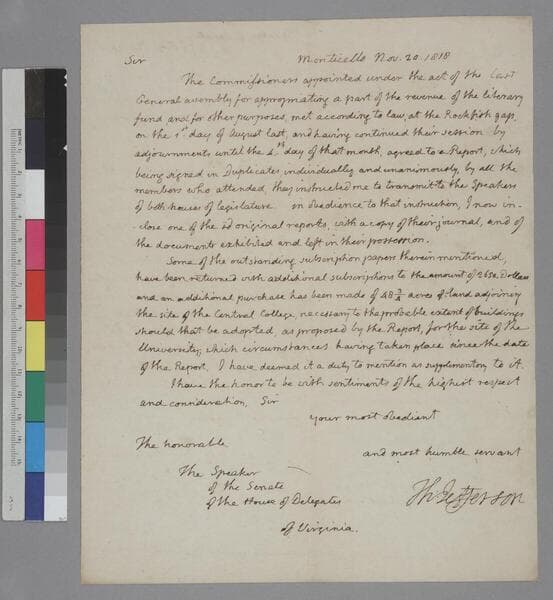 Sir Monticello Nov. 20. 1818
The Commissioners appointed under the act of the last
General assembly for appropriating a part of the revenue of the literary
fund and for other purposes, met according to law, at the Rockfish gap,
on the 1st day of August last, and having continued their session by
adjournments until the 4th day of that month, agreed to a Report, which
being signed in Duplicates individually and unanimously, by all the
members who attended, they instructed me to transmit to the Speakers
of both houses of legislature. in obedience to that instruction, I now in-
-close one of the sd original reports, with a copy of their journal, and of
the documents exhibited and left in their possession.
Some of the outstanding subscription papers therein mentioned,
have been returned with additional subscriptions to the amount of Dollars
and an additional purchase has been made of 48 3/4 acres of land adjoining
the site of the Central College, necessary to the probable extent of buildings
should that be adopted, as proposed by the Report, for the site of the
University; which circumstances having taken place since the date
of the Report, I have deemed it a duty to mention as supplementory to it.
I have the honor to be with sentiments of the highest respect
and consideration, Sir
your most obedient
The honorable and most humble servant
The Speaker
of the Senate
of the House of Delegates Th: Jefferson
of Virginia.